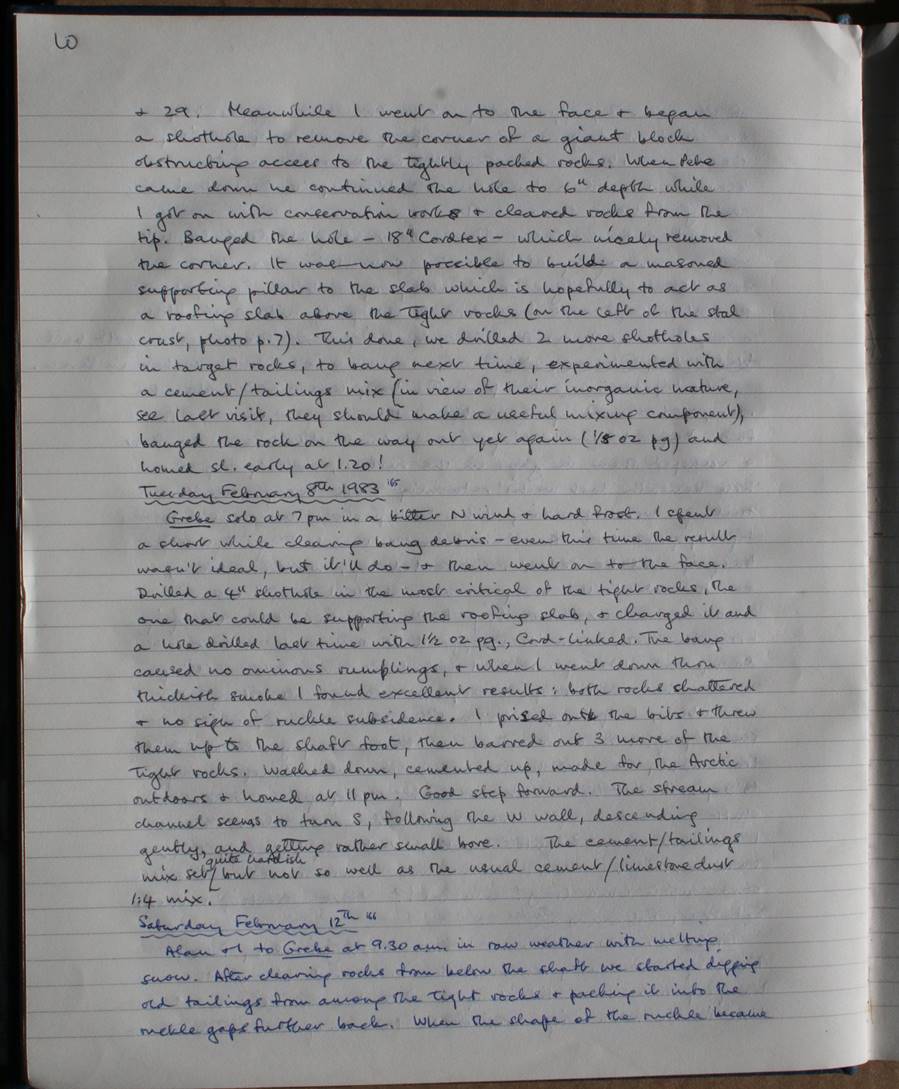 10
+ 29. Meanwhile I went on to the face + began
a shothole to remove the corner of a giant block
obstructing access to the tightly packed rocks. When Pete
came down he continued the hole to 6" depth while
I got on with conservation works + cleared rocks from the
tip. Banged the hole - 18" Cordtex - which nicely removed
the corner. It was now possible to build a masoned
supporting pillar to the slab which is hopefully to act as
a roofing slab above the tight rocks (on the left of the stal
crust, photo p.7). This done, we drilled 2 more shotholes
in target rocks, to bang next time, experimented with
a cement/tailings mix (in view of their inorganic nature,
see last visit, they should make a useful mixing component),
banged the rock on the way out yet again (1/8 oz pg) and
homed sl. early at 1.20!
Tuesday February 8th 1983 165
Grebe solo at 7pm in a bitter N wind + hard frost. I spent
a short while clearing bang debris - even this time the result
wasn't ideal, but it'll do - + then went on to the face.
Drilled a 4" shothole in the most critical of the tight rocks, the
one that could be supporting the roofing slab, + charged it and
a hole drilled last time with 1½ oz pg., Cord-linked. The bang
caused no ominous rumblings, + when I went down thro
thickish smoke I found excellent results: both rocks shattered
+ no sign of ruckle subsidence. I prised out the bits + threw
them up to the shaft foot, then barred out 3 more of the
tight rocks. Washed down, cemented up, made for the Arctic
outdoors + homed at 11pm. Good step forward. The stream
channel seems to turn S, following the W wall, descending
gently, and getting rather small bore. The cement/tailings
mix set quite hardish but not so well as the usual cement/limestone dust
1:4 mix.
Saturday February 12th 166
Alan + I to Grebe at 9.30 a.m. in raw weather with melting
snow. After clearing rocks from below the shaft we started digging
old tailings from among the tight rocks + packing it into the
ruckle gaps further back. When the shape of the ruckle became